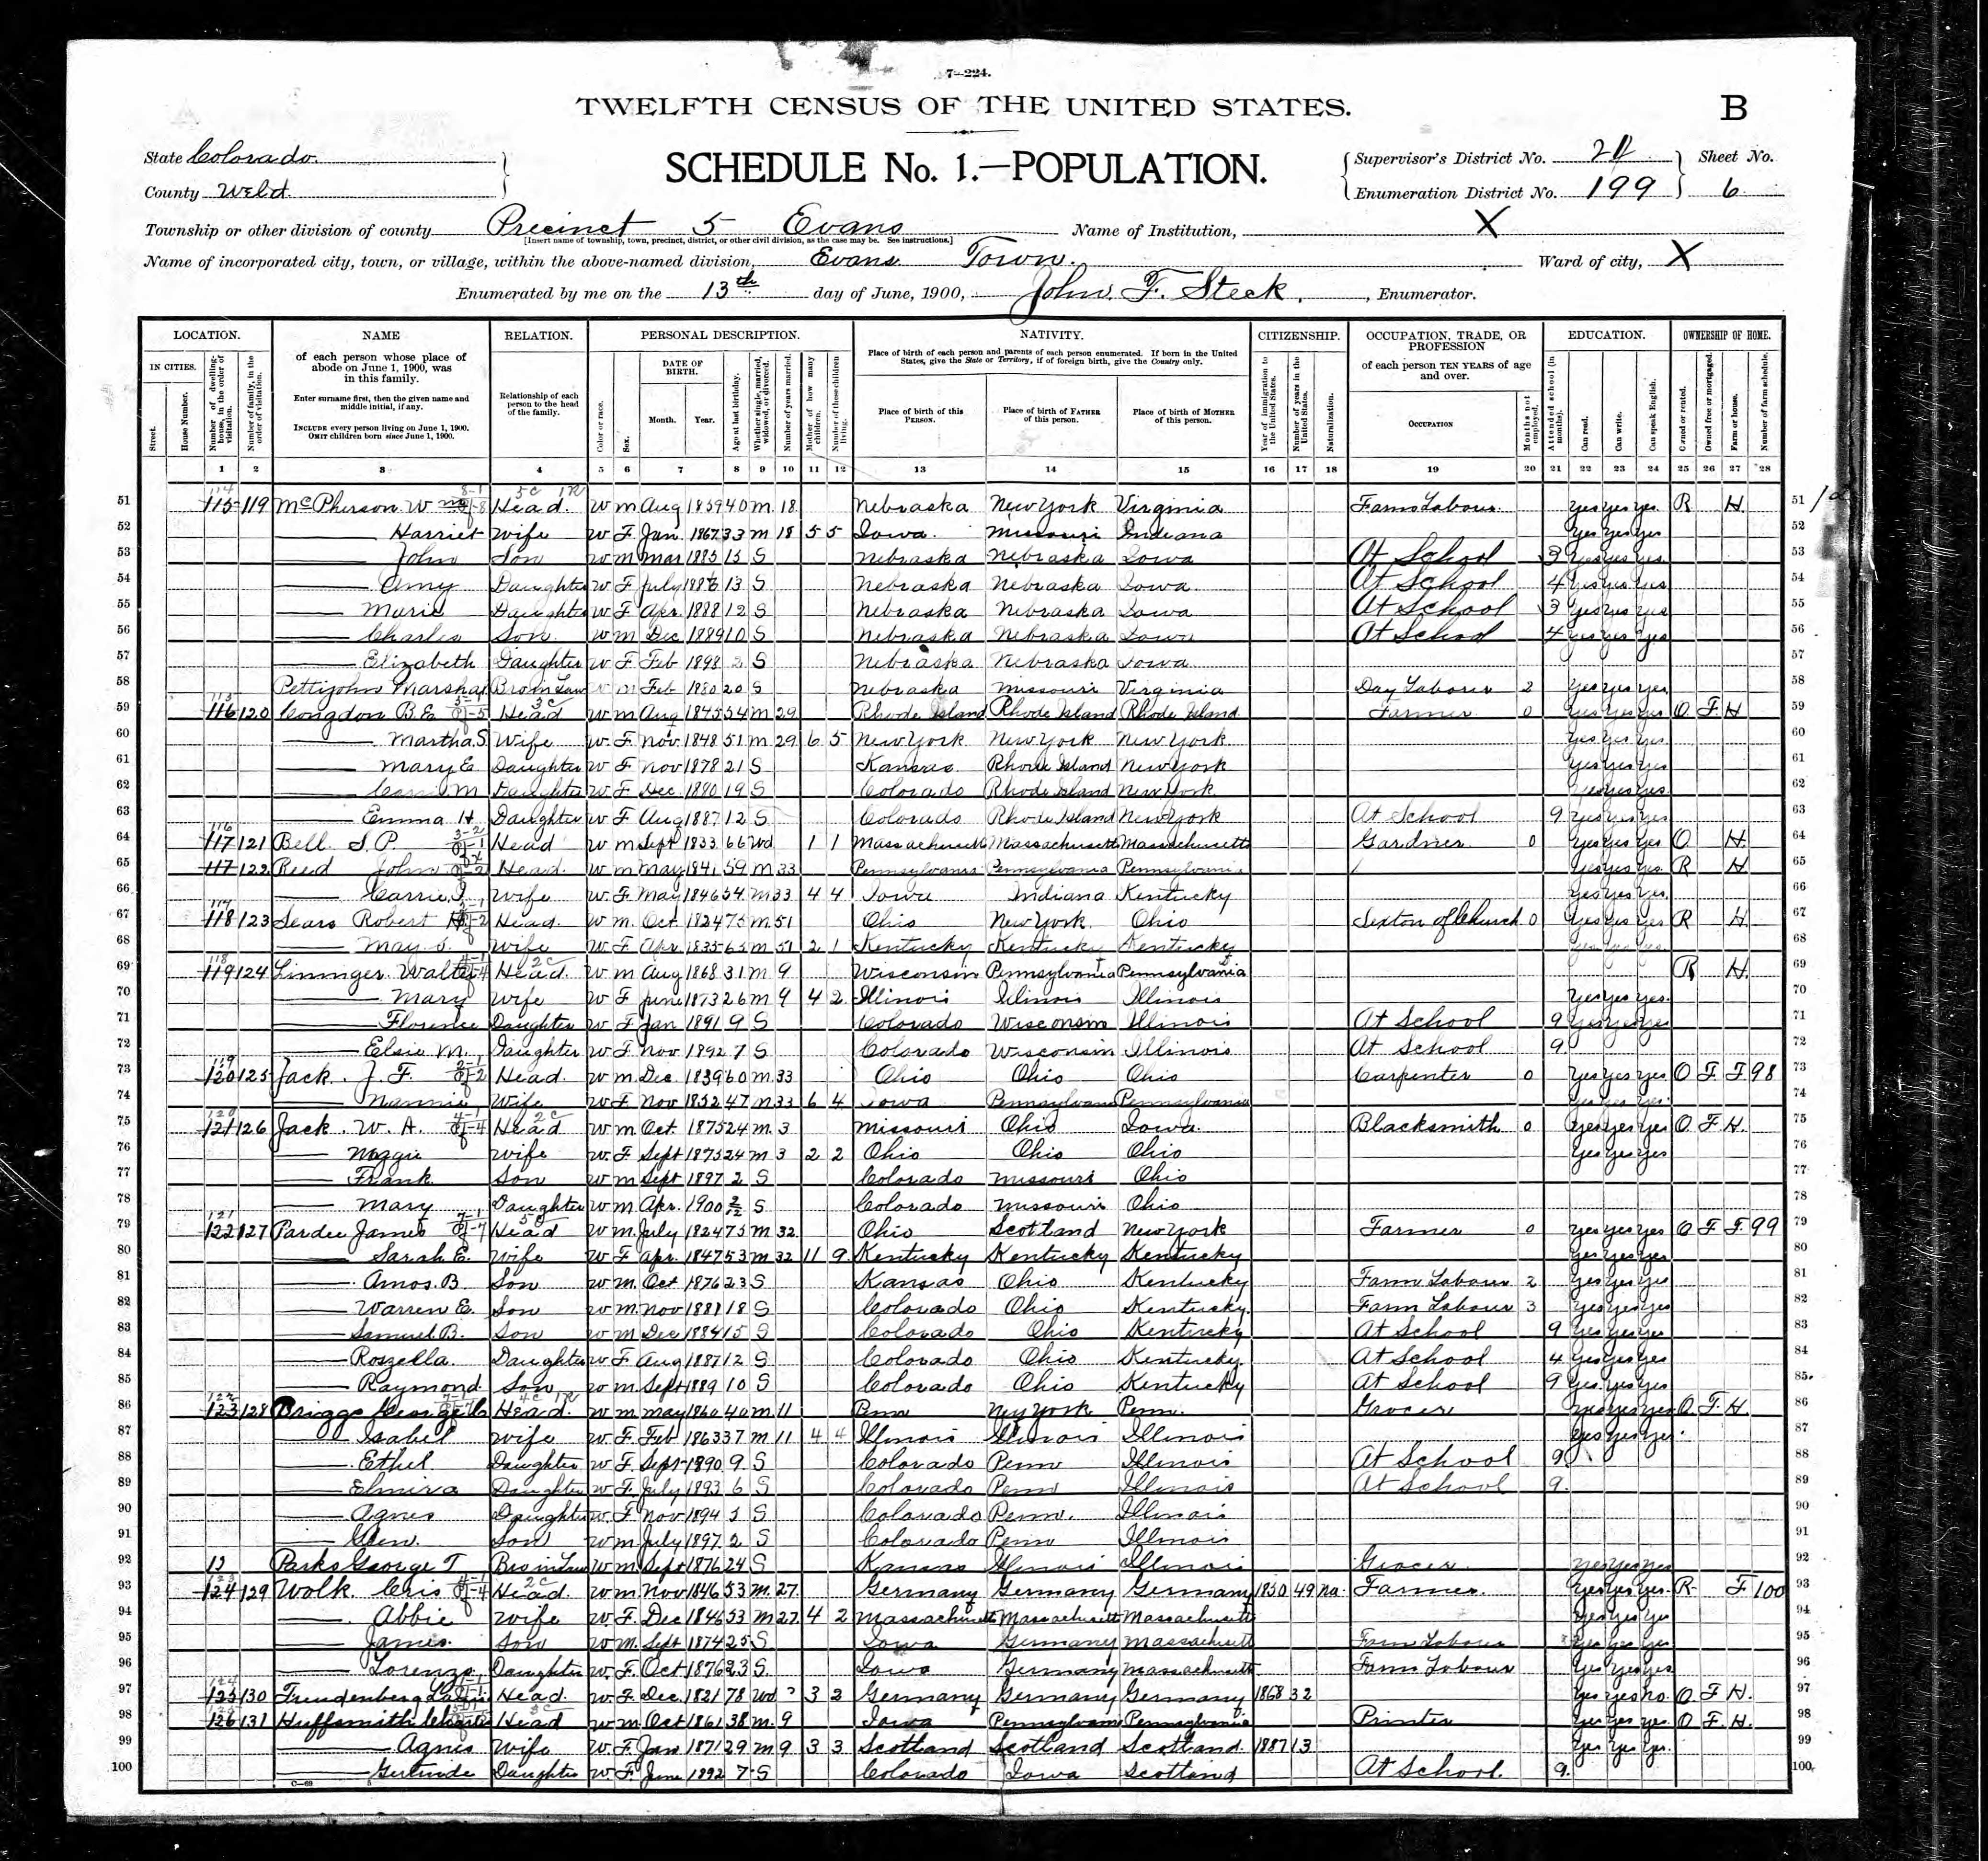 7—224.
TWELFTH CENSUS OF THE UNITED STATES.
B
State Colorado
County Weld
SCHEDULE No. 1.—POPULATION.
Supervisor's District No.
Enumeration District No. 199
Sheet No.
6
Township or other division of county Precinct 5 Evans
[Insert name of township, town, precinct, district, or other civil division, as the case may be. See instructions.]
Name of Institution, X
Name of incorporated city, town, or village, within the above-named division, Evans Town.
Ward of city, X
Enumerated by me on the 13th day of June, 1900, John. F. Steck, Enumerator.
LOCATION.
IN CITIES.
Street.
House Number.
Number of dwelling-house, in the order of visitation.
Number of family, in the order of visitation.
NAME
of each person whose place of abode on June 1, 1900, was in this family.
Enter surname first, then the given name and middle initial, if any.
INCLUDE every person living on June 1, 1900.
OMIT children born since June 1, 1900.
RELATION.
Relationship of each person to the head of the family.
PERSONAL DESCRIPTION.
Color or race.
Sex.
DATE OF BIRTH.
Month. Year.
Age at last birthday.
Whether single, married, widowed, or divorced.
Number of years married.
Mother of how many children.
Number of these children living.
NATIVITY.
Place of birth of each person and parents of each person enumerated. If born in the United States, give the State or Territory, if of foreign birth, give the Country only.
Place of birth of this PERSON.
Place of birth of FATHER of this person.
Place of birth of MOTHER of this person.
CITIZENSHIP.
Year of immigration to the United States.
Number of years in the United States.
Naturalization.
OCCUPATION, TRADE, OR PROFESSION
of each person TEN YEARS of age and over.
OCCUPATION
Months not employed.
EDUCATION.
Attended school (in months).
Can read.
Can write.
Can speak English.
OWNERSHIP OF HOME.
Owned or rented.
Owned free or mortgaged.
Farm or house.
Number of farm schedule.
1 2 3 4 5 6 7 8 9 10 11 12 13 14 15 16 17 18 19 20 21 22 23 24 25 26 27 28
51 115 119 McPherson W Head. W m Aug 1859 40 m 18 Nebraska New York Virginia Farm Labour yes yes yes R H 51
52 Harriet wife W F Jan 1867 33 m 18 5 5 Iowa. Missouri Indiana yes yes yes 52
53 John Son W m Mar 1885 15 S Nebraska Nebraska Iowa At School 3 yes yes yes 53
54 Amy Daughter W F July 1886 13 S Nebraska Nebraska Iowa At School 4 yes yes yes 54
55 Marie Daughter W F Apr 1888 12 S Nebraska Nebraska Iowa At School 3 yes yes yes 55
56 Charles Son W m Dec 1889 10 S Nebraska Nebraska Iowa At School 4 yes yes yes 56
57 Elizabeth Daughter W F Feb 1898 2 S Nebraska Nebraska Iowa 57
58 Pettijohn Marshal Bro in Law W m Feb 1880 20 S Nebraska Missouri Virginia Day Labour 2 yes yes yes 58
59 116 120 Congdon B. E Head W m Aug 1845 54 m 29 Rhode Island Rhode Island Rhode Island Farmer 0 yes yes yes O F H 59
60 Martha S Wife W F Nov 1848 51 m 29 6 5 New York New York New York yes yes yes 60
61 Mary E. Daughter W F Nov 1878 21 S Kansas Rhode Island New York yes yes yes 61
62 M Daughter W F Dec 1880 19 S Colorado Rhode Island New York yes yes yes 62
63 Emma H Daughter W F Aug 1887 12 S Colorado Rhode Island New York At School 9 yes yes yes 63
64 117 121 Bell S. P. Head W m Sept 1833 66 Wd 1 1 Massachusetts Massachusetts Massachusetts Gardner 0 yes yes yes O H 64
65 117 122 Reed John Head W m May 1841 59 m 33 Pennsylvania Pennsylvania Pennsylvania yes yes yes R H 65
66 Carrie wife W F May 1846 54 m 33 4 4 Iowa Indiana Kentucky yes yes yes 66
67 118 123 Sears Robert Head W m. Oct. 1824 75 m 51 Ohio New York Ohio Sexton of Church 0 yes yes yes R H 67
68 May wife W F Apr 1835 65 m 51 2 1 Kentucky Kentucky Kentucky yes yes yes 68
69 119 124 Lininger Walter Head. W m Aug 1868 31 m 9 Wisconsin Pennsylvania Pennsylvania R H 69
70 Mary wife W F June 1873 26 m 9 4 2 Illinois Illinois Illinois yes yes yes 70
71 Florence Daughter W F Jan 1891 9 S Colorado Wisconsin Illinois At School 9 yes yes yes 71
72 Elsie M. Daughter W F Nov 1892 7 S Colorado Wisconsin Illinois At School 9 72
73 120 125 Jack. J. F. Head. W m Dec. 1839 60 m 33 Ohio Ohio Ohio Carpenter 0 yes yes yes O F F 98 73
74 Nannie Wife W F Nov 1852 47 m 33 6 4 Iowa Pennsylvania Pennsylvania yes yes yes 74
75 121 126 Jack. W. A. Head W m Oct. 1875 24 m 3 Missouri Ohio Iowa. Blacksmith 0 yes yes yes O F H. 75
76 Maggie wife W. F Sept 1875 24 m 3 2 2 Ohio Ohio Ohio yes yes yes 76
77 Frank Son W m Sept 1897 2 S Colorado Missouri Ohio 77
78 Mary Daughter W m Apr. 1900 2/12 S Colorado Missouri Ohio 78
79 122 127 Pardee James Head W m. July 1824 75 m 32. Ohio Scotland New York Farmer 0 yes yes yes O F F 99 79
80 Sarah E. Wife W F Apr. 1847 53 m 32 11 9 Kentucky Kentucky Kentucky yes yes yes 80
81 Amos. B Son W m. Oct 1876 23 S Kansas Ohio Kentucky Farm Labour 2 yes yes yes 81
82 Warren E. Son W m. Nov 1881 18 S Colorado Ohio Kentucky. Farm Labour 3 yes yes yes 82
83 Samuel B. Son W m Dec 1884 15 S Colorado Ohio Kentucky At School 9 yes yes yes 83
84 Roszella. Daughter W F Aug 1887 12 S Colorado Ohio Kentucky. At School 4 yes yes yes 84
85 Raymond Son W m Sept 1889 10 S Colorado Ohio Kentucky At School 9 yes yes yes 85
86 123 128 Briggs George Head. W m May 1860 40 m 11 Penn New York Penn. Grocer yes yes yes O F H 86
87 Isabel wife W. F. Feb 1863 37 m 11 4 4 Illinois Illinois Illinois yes yes yes 87
88 Ethel Daughter W F. Sept 1890 9. S Colorado Penn Illinois At School 9 88
89 Elmira Daughter W F July 1893 6 S Colorado Penn Illinois At School 9. 89
90 Agnes Daughter W. F Nov 1894 5 S Colorado Penn. Illinois 90
91 Glen. Son W m July 1897 2 S Colorado Penn Illinois 91
92 12 Parks George T Bro in Law W m. Sept 1876 24 S Kansas Illinois Illinois Grocer yes yes yes 92
93 124 129 Wolk. Cris Head. W m Nov 1846 53 m. 27. Germany Germany Germany 1850 49 na Farmer. yes yes yes R F 100 93
94 Abbie wife W. F. Dec 1846 53 m 27 4 2 Massachusetts Massachusetts Massachusetts yes yes yes 94
95 James. Son W m. Sept 1874 25 S Iowa Germany Massachusetts Farm Labour yes yes yes 95
96 Lorenzo, Daughter W. F. Oct 1876 23 S. Iowa Germany Massachusetts Farm Labour yes yes yes 96
97 125 130 Freudenberg Head. W F. Dec. 1821 78 Wd ? 3 2 Germany Germany Germany 1868 32 yes yes no. O F H. 97
98 126 131 Huffsmith Charles Head W m Oct 1861 38 m. 9 Iowa Pennsylvania Pennsylvania Printer yes yes yes O F H. 98
99 Agnes wife W. F. Jan 1871 29 m 9 3 3 Scotland Scotland Scotland. 1887 13 yes yes yes. 99
100 Gertrude Daughter W. F. June 1892 7 S Colorado Iowa Scotland At School. 9. 100